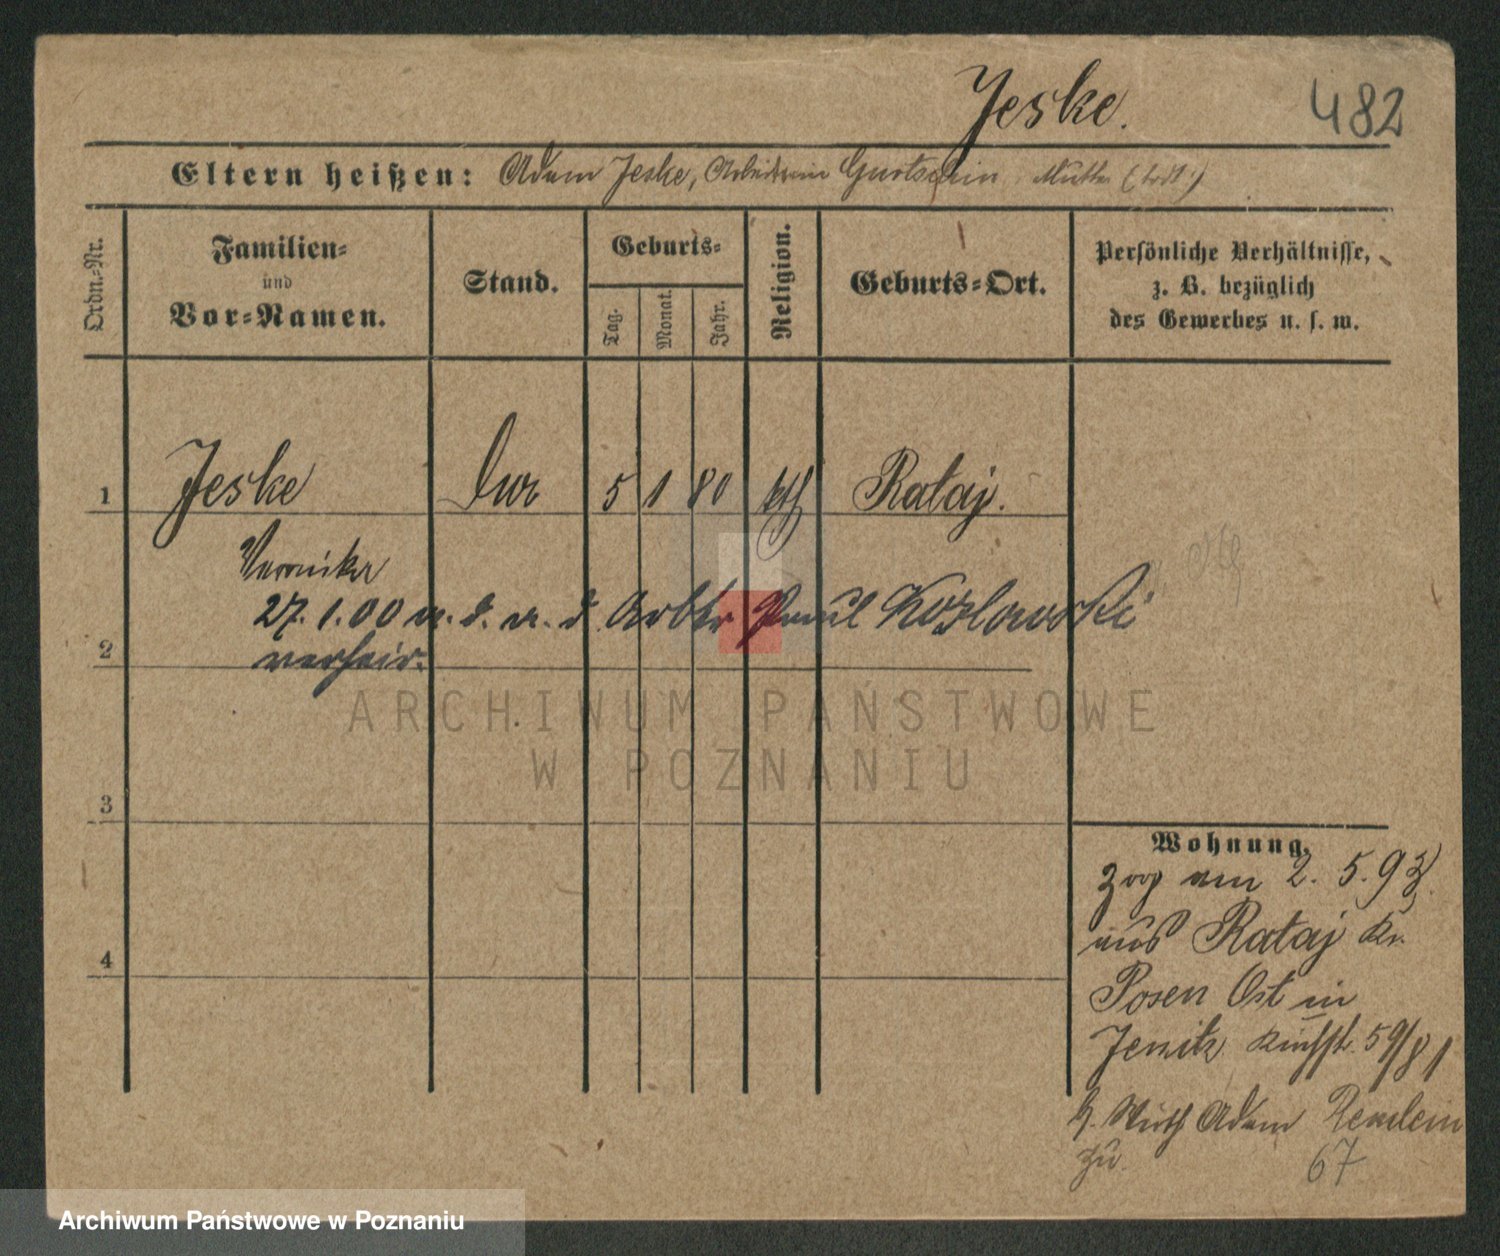 Jeske.
482
Eltern heißen: Adam Jeske, Arbeiterin Mutter (todt.)
Ordn.-Nr.
Familien-
und
Vor-Namen.
Stand.
Geburts-
Tag.
Monat.
Jahr.
Religion.
Geburts-Ort.
Persönliche Verhältnisse,
z. B. bezüglich
des Gewerbes u. s. w.
1 Jeske 5 1 80 kth Rataj.
Veronika
27.1.00 m. d. Arbtr Paul Kozlowski
2 verheir.
3
4
Wohnung.
zog am 2. 5. 93
aus Rataj Kr.
Posen Ost in
Jersitz 59/81
z. Adam
zu.
67
ARCHIWUM PAŃSTWOWE
W POZNANIU
Archiwum Państwowe w Poznaniu